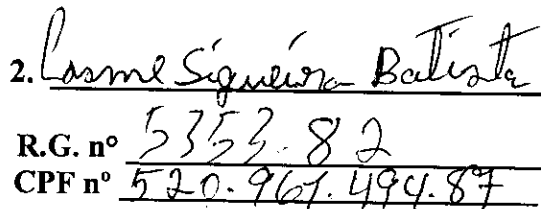 2. Cosme Siqueira Batista
R.G. nº 5353.82
CPF nº 520.961.494.87